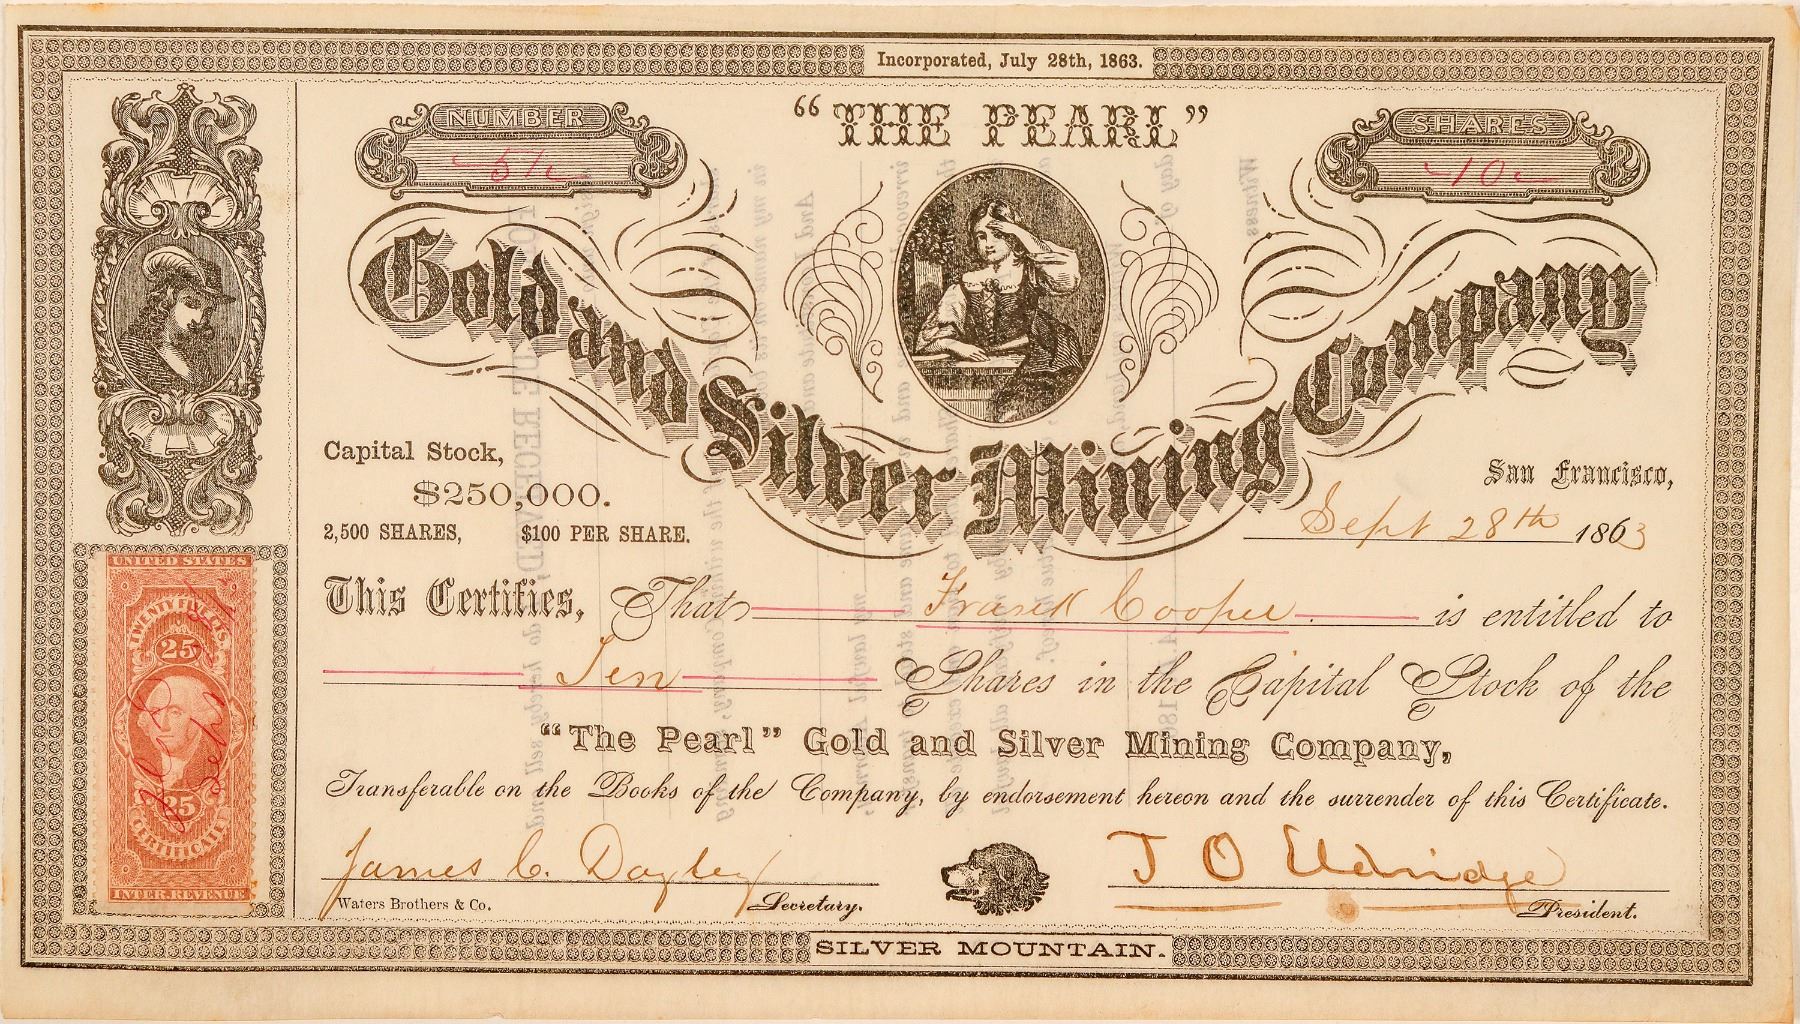 Incorporated, July 28th, 1863.
"THE PEARL"
NUMBER
SHARES
10
Gold and Silver Mining Company
Capital Stock,
$250,000.
2,500 SHARES, $100 PER SHARE.
San Francisco,
Sept 28th 1863
This Certifies, That Frank Cooper is entitled to
Ten Shares in the Capital Stock of the
"The Pearl" Gold and Silver Mining Company,
Transferable on the Books of the Company, by endorsement hereon and the surrender of this Certificate.
James C. Dayley
J O Eldridge
Waters Brothers & Co.
Secretary.
President.
SILVER MOUNTAIN.
UNITED STATES
TWENTY FIVE CTS.
25
25
CERTIFICATE
INTER. REVENUE